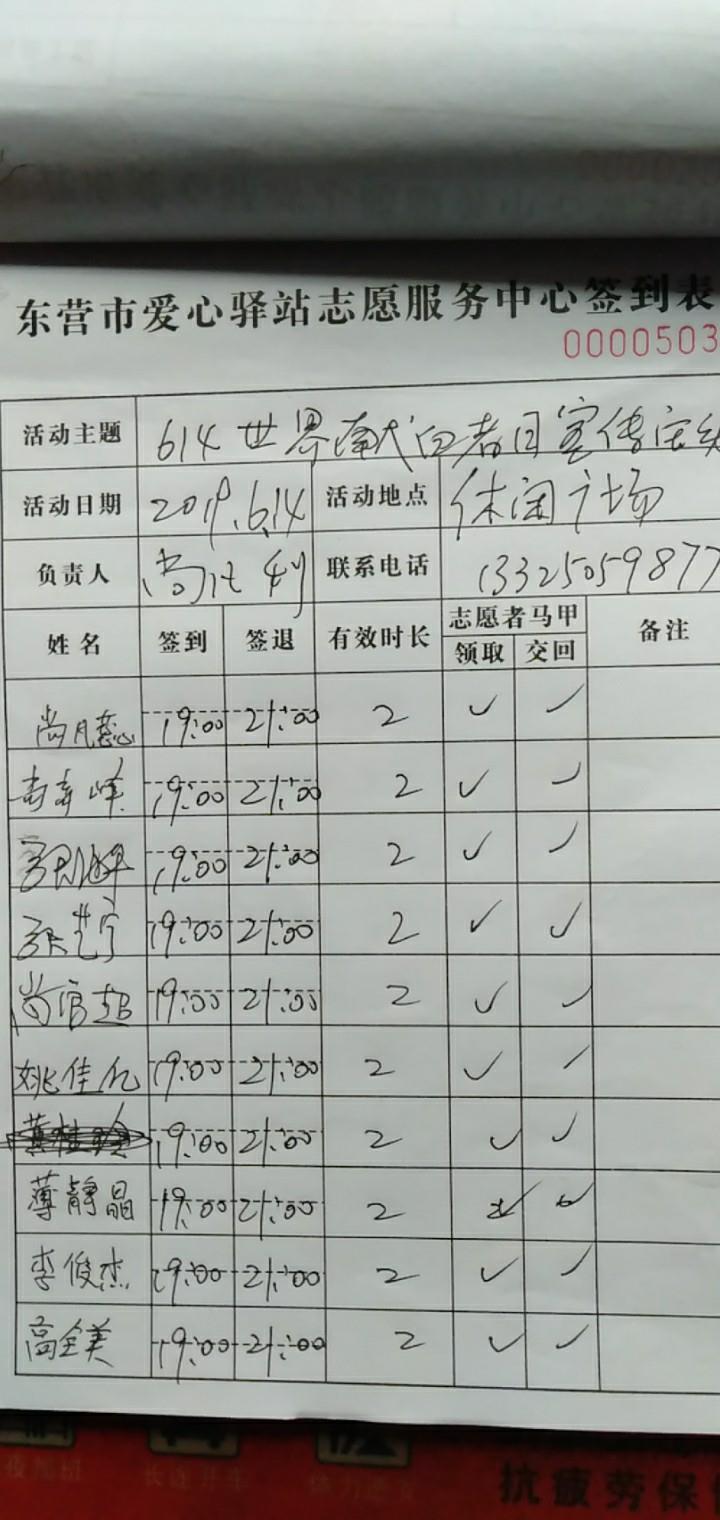 东营市爱心驿站志愿服务中心签到表
0000503
活动主题 614世界献血者日宣传
活动日期 2019.6.14 活动地点 休闲广场
负责人 联系电话 13325059877
姓名 签到 签退 有效时长 志愿者马甲 备注
领取 交回
尚凡蕊 19:00 21:00 2 ✓ ✓
19:00 21:00 2 ✓ ✓
19:00 21:00 2 ✓ ✓
张艺宁 19:00 21:00 2 ✓ ✓
尚官超 19:00 21:00 2 ✓ ✓
姚佳仪 19:00 21:00 2 ✓ ✓
19:00 21:00 2 ✓ ✓
薄静晶 19:00 21:00 2 ✓ ✓
李俊杰 19:00 21:00 2 ✓ ✓
高全美 19:00 21:00 2 ✓ ✓
抗疲劳保